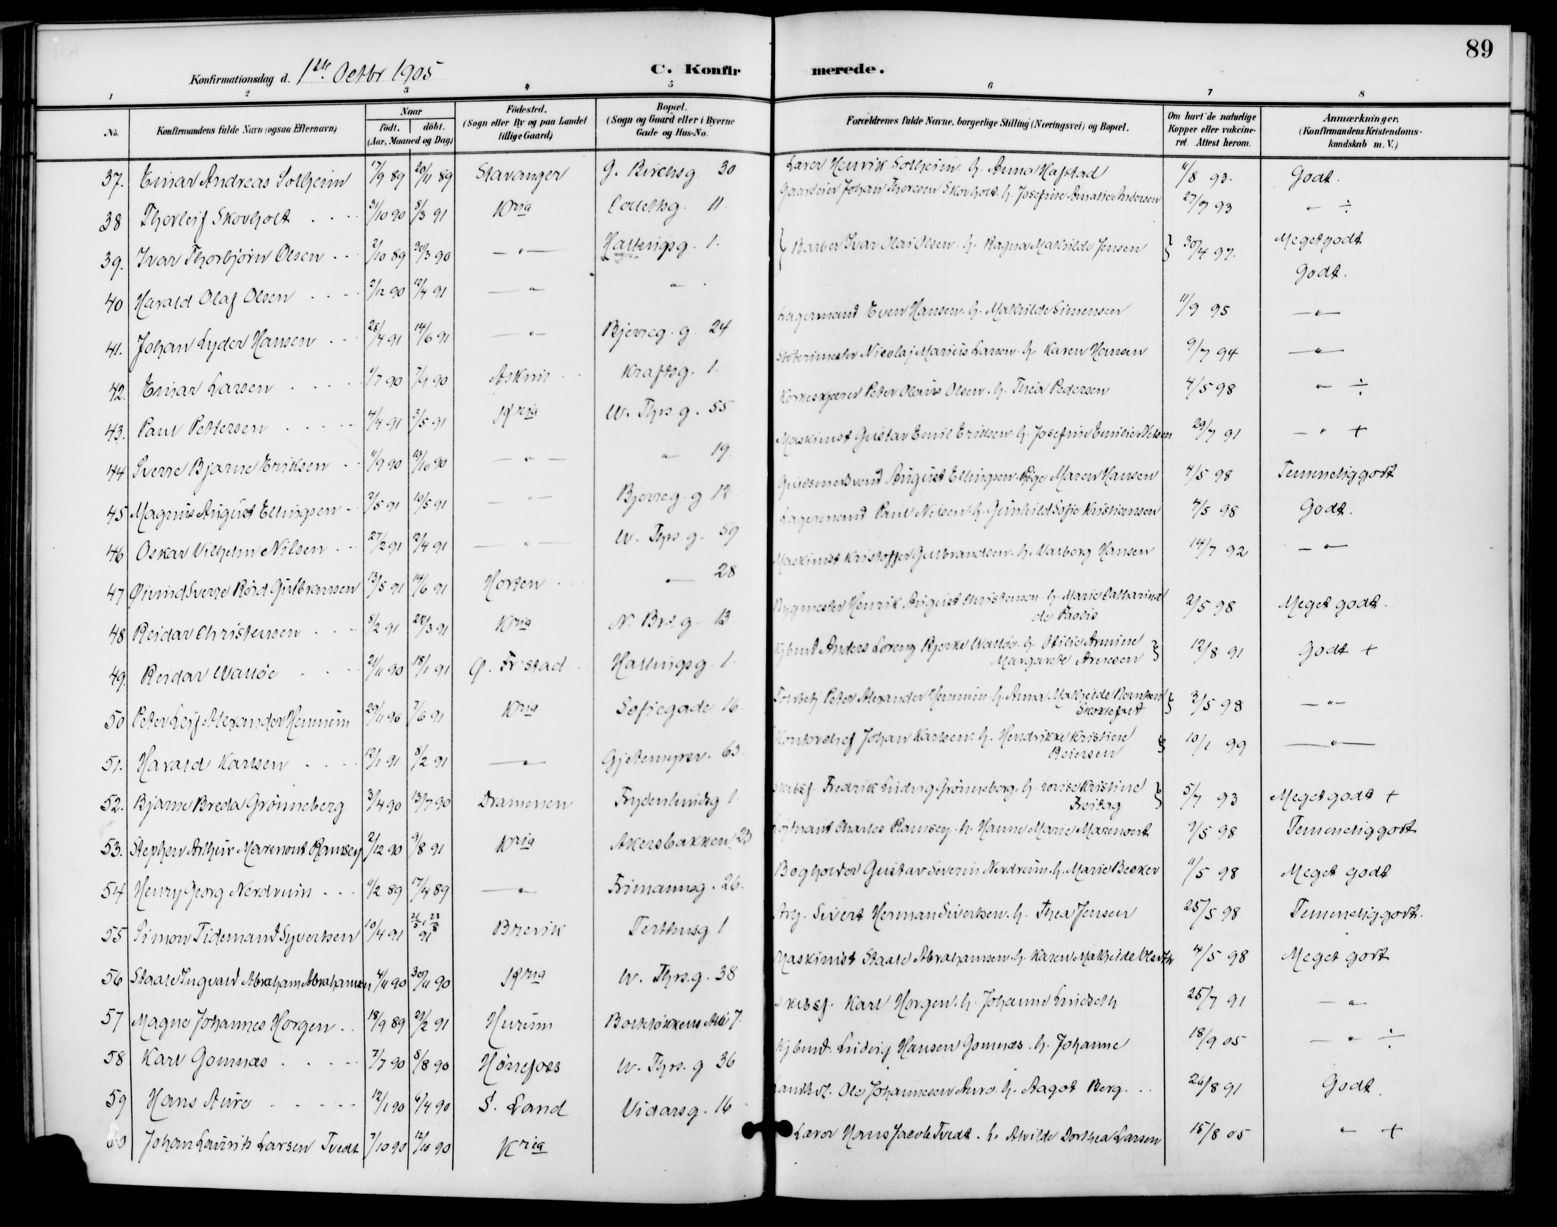 89
Konfirmationsdag d. 1ste Octbr 1905
C. Konfirmerede.
1 2 3 4 5 6 7 8
No.
Konfirmandens fulde Navn (ogsaa Efternavn)
Naar
født.
døbt.
(Aar, Maaned og Dag)
Fødested.
(Sogn eller By og paa Landet
tillige Gaard)
Bopæl.
(Sogn og Gaard eller i Byerne
Gade og Hus-No.
Forældrenes fulde Navne, borgerlige Stilling (Næringsvei) og Bopæl.
Om havt de naturlige
Kopper eller vakcine-
ret. Attest herom.
Anmærkninger.
(Konfirmandens Kristendoms-
kundskab m. V.)
37. Einar Andreas Solheim 89 20/11 89 Stavanger G. Birchsg. 30 Lærer Henrik Solheim h. Anna Hafstad 93. Godt.
38 Thorleif Skovholt 3/10 90 8/3 91 Kria Collettsg. 11 Gaardeier Johan Skovholt h. Josefine Andersen 27/7 93 - ÷
39. Ivar Thorbjørn Olsen 2/10 89 30/3 90 - " - Hallingsg. 1. Barber Ivar Olai Olsen h. Ragna Mathilde Jensen 30/4 97. Meget godt
40 Harald Olaf Olsen 2/12 90 12/4 91 - " " Godt.
41. Johan Lyder Hansen 28/4 91 14/6 91 - " - Bjerreg. g. 24 Lagermand Even Hansen h. Mathilde Simensen 11/9 95 - " -
42. Einar Larsen 1/7 90 7/9 90 Askim Kraftsg. 1. Nicolaj Marius Larsen h. Karen Hansen 9/7 94 - " -
43. Paul Pettersen 4/4 91 3/5 91 Kria W. Thrs g. 55 Peter Olaus Olsen h. Thea Pedersen 4/5 98 " ÷
44 Sverre Bjarne Eriksen 90 90 - " - " 19. Maskinist Gustav Emil Eriksen h. Josefine Emilie Nilsen 29/7 91 - " +
45 Magnus August Ellingsen 2/5 91 10/5 91 - " - Bjerreg. g 12 August Ellingsen Maren Hansen 4/5 98 Temmelig godt
46 Oskar Vilhelm Nilsen 27/2 91 2/4 91 - " - W. Thrs g. 59 Lagermand Paul Nilsen h. Gunhild Sofie Kristiansen 4/5 98 Godt.
47 Øivind Sverre Gulbransen 13/5 91 14/6 91 Horten - 28 Maskinist Kristoffer Gulbrandsen h. Valborg Hansen 14/7 92 - " -
48 Reidar Christensen 8/2 91 22/3 91 Kria N. Brs. g. 13 Bygmester Henrik August Christensen h. Marie Catharina
de Paolis 2/5 98 Meget godt.
49. Reidar Walløe 2/11 90 18/1 91 Ø. Fr stad Hallingsg. 1 Anders Lorens Bjerke Walløe h. Otilie Armine
Margarete Arnesen 12/8 91 Godt +
50 Peter Leif Alexander Hennum 29/11 90 7/6 91 Kria Sofiegade 16 Peter Alexander Hennum h. Anna Mathilde 3/5 98 - " -
51. Harald Karlsen 12/1 91 8/2 91 - " - Gjetemyrsv. 63. Kontorchef Johan Karlsen h. Hendrikke Kristine
Reiersen 10/1 99 - " -
52. Bjarne Breda Grønneberg 3/4 90 13/7 90 Drammen Frydenlundsg 1 Fredrik Ludvig Grønneberg h. Kristine
Freitag 5/7 93 Meget godt +
53. Stephen Arthur Marmont Ramsey 2/12 90 9/8 91 Kria Akersbakken 23 Løjtnant Charles Ramsey h. Hanne Marie Marmont 5 98 Temmelig godt
54 Henry Georg Nordrum 2 89 17/4 89 - " - Frimannsg. 26. Bogholder Gustav Severin Nordrum h. Marie Becker 5 98 Meget godt
55 Simon Tidemand Syvertsen 10/4 91 91 Brevik Terthusg 1 Arb. Sivert Herman Sivertsen h. Thea Jensen 25/5 98 Temmelig godt.
56 Staale Ingvald Abraham Abrahamsen 4/11 90 30/11 90 Kria W. Thrs.g. 38 Maskinist Staale Abrahamsen h. Karen Mathilde 4/5 98 Meget godt
57 Magne Johannes Horgen 18/9 89 2 91 Hurum 7. Skibsf. Karl Horgen h. Johanne Lindseth 25/7 91 - "
58 Karl Gomnæs 7/7 90 8/8 90 Hønefoss W. Thrs. g 36 Ludvig Hansen Gomnæs h. Johanne 18/9 05 - " ÷
59 Hans Aure 12/1 90 4/4 90 S. Land Vidarsg. 16 Landh. Ole Johannesen Aure h. Aagot Berg. 26/8 91 Godt.
60 Johan Lauritz Larsen Tvedt 7/10 90 12/10 90 Kria Lærer Hans Jacob Tvedt h. Alvilde Dorthea Larsen 15/8 05 " +